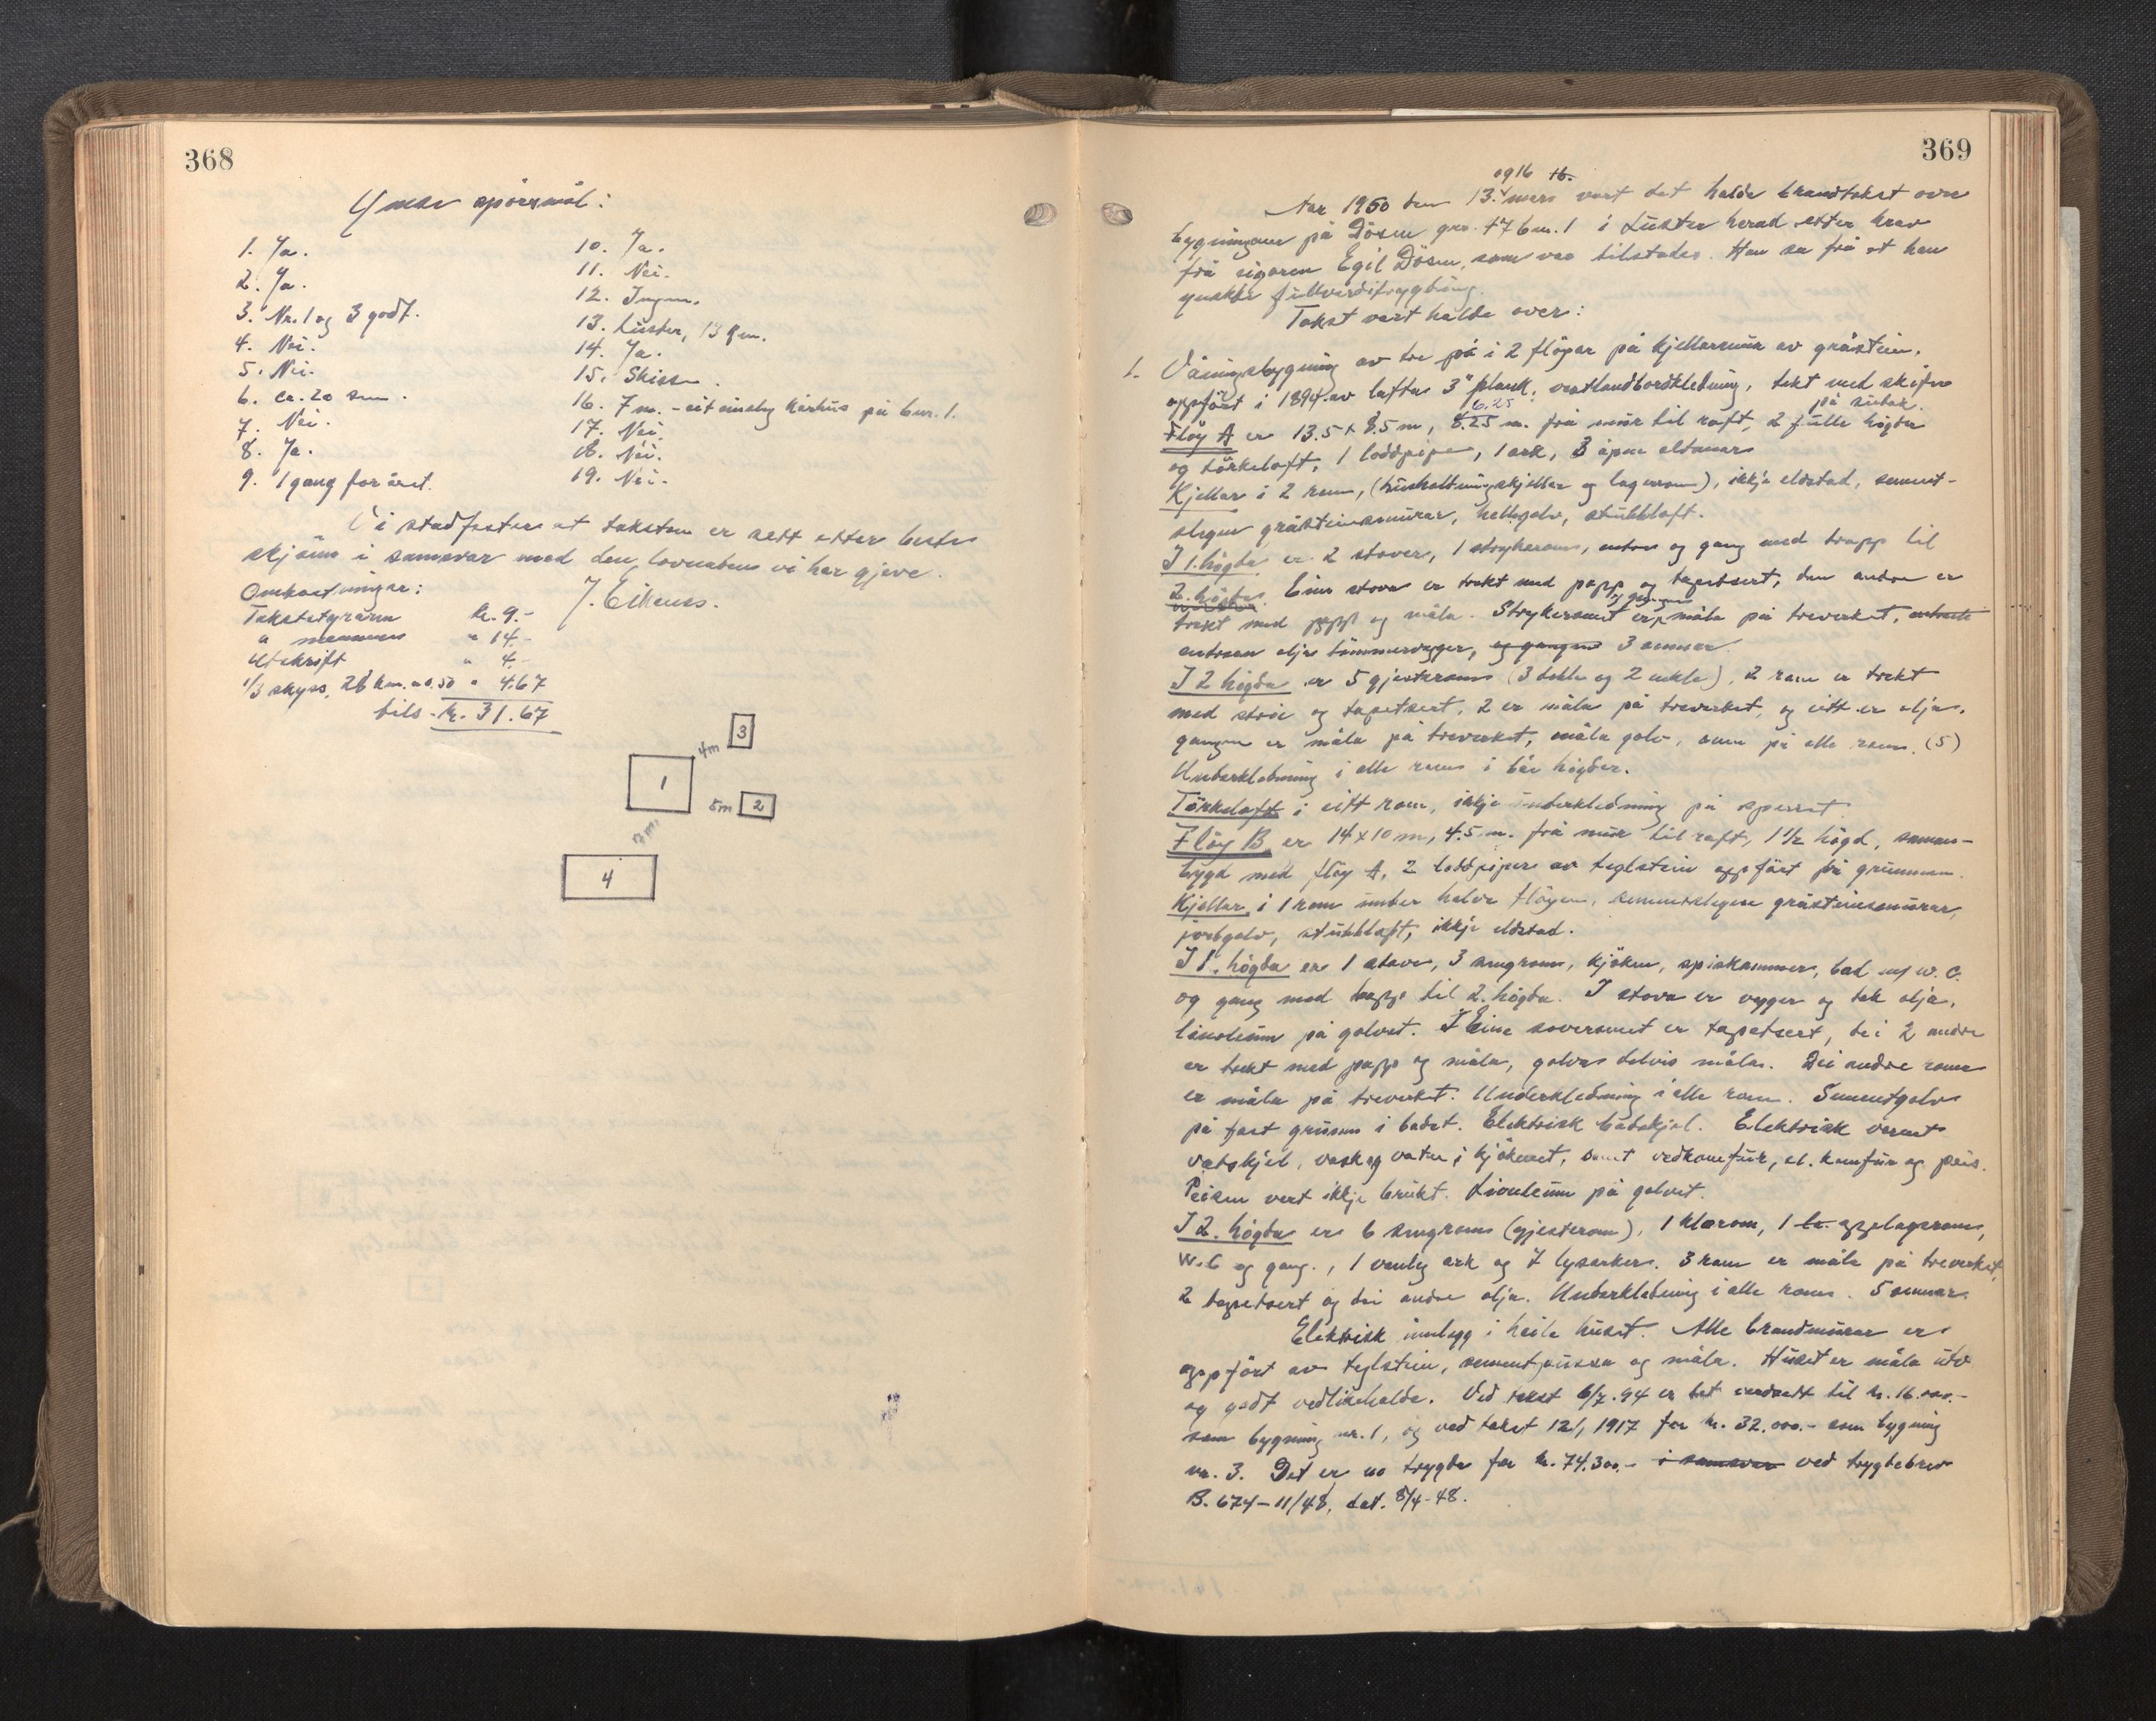 368
Ymse spörsmål:
1. Ja.
2. Ja.
3. Nr. 1 og 3 godt.
4. Nei.
5. Nei.
6. ca. 20 sm.
7. Nei.
8. Ja.
9. 1 gang for året.
10. Ja.
11. Nei.
12. Ingen.
13. Luster, 13 km.
14. Ja.
15. Skisse.
16. 7 m. - eit einsleg kårhus på bnr. 1.
17. Nei.
18. Nei.
19. Nei.
Vi stadfester at taksten er sett etter beste
skjönn i samsvar med den lovnaden vi har gjeve.
Omkostningar:
J. Eikenes.
Takststyraren kr. 9.-
" mennene " 14.-
Utskrift " 4.-
1/3 skyss, 28 km. a 0.50 " 4.67
tils. kr. 31.67
3
4m
1
5m 2
4
369
og 16 16.
År 1950 den 13. mars vart det halde brandtakst over
bygningane på Dösen gnr. 47 bnr. 1 i Luster herad etter krav
frå eigaren Egil Dösen, som var tilstades. Han sa frå at han
ynskte fullverditrygding.
Takst vart halde over:
1. Våningsbygning av tre på i 2 flöyar på kjellarmur av gråstein,
oppfört i 1894 av lafta 3" plank, vestlandbordkledning, tekt med skifer
på sutak.
6.25
Flöy A er 13.5 x 8.5 m, 8.25 m. frå mur til raft, 2 fulle högder
og törkeloft, 1 loddpipe, 1 ark, 3 åpne altaner
Kjellar i 2 rom, (hushaltningskjellar og lagerrom), ikkje eldstad, sement-
slegne gråsteinsmurar, hellegolv, stubbloft.
I 1. högda er 2 stover, 1 strykerom, entre og gang med trapp til
2. högda. Eine stova er trekt med papp og tapetsert, den andre er
trekt med papp og måla. Strykeromet og gangen er måla på treverket, entreen
entreen olja tömmervegger, og gangen 3 omnar.
I 2 högda er 5 gjesterom (3 doble og 2 enkle), 2 rom er trekt
med strie og tapetsert, 2 er måla på treverket, og eitt er olja,
gangen er måla på treverket, måla golv, omn på alle rom. (5)
Underkledning i alle rom i båe högder.
Törkeloft i eitt rom, ikkje underkledning på sperret.
Flöy B. er 14 x 10 m, 4.5 m. frå mur til raft, 1 1/2 högd, saman-
bygd med flöy A, 2 loddpiper av teglstein oppfört frå grunnen.
Kjellar i 1 rom under halve flöyen, sementslegne gråsteinsmurar,
jordgolv, stubbloft, ikkje eldstad.
I 1. högda er 1 stove, 3 sengrom, kjöken, spiskammer, bad m/ w.c.
og gang med trapp til 2. högda. I stova er vegger og tak olja,
linoleum på golvet. I Eine soveromet er tapetsert, dei 2 andre
er trekt med papp og måla, golva delvis måla. Dei andre roma
er måla på treverket. Underkledning i alle rom. Sementgolv
på fast grunn i badet. Elektrisk badekjel. Elektrisk varmt-
vatskjel, vask og vatn i kjökenet, samt vedkomfur, el. komfur og peis.
Peisen vert ikkje brukt. Linoleum på golvet.
I 2. högda er 6 sengrom (gjesterom), 1 klærom, 1 opplagsrom,
W.C og gang, 1 vanleg ark og 7 lysarker. 3 rom er måla på treverket,
2 tapetsert og dei andre olja. Underkledning i alle rom. 5 omnar.
Elektrisk innlegg i heile huset. Alle brandmurar er
oppfört av teglstein, sementpussa og måla. Huset er måla utv.
og godt vedlikehalde. Ved takst 6/7.94 er det verdsett til kr. 16.000.-
som bygning nr. 1, og ved takst 12/1 1917 for kr. 32.000.- som bygning
nr. 3. Det er no trygda for kr. 74.300.- i samsvar ved trygdebrev
B. 674-11/48, dat. 8/4-48.